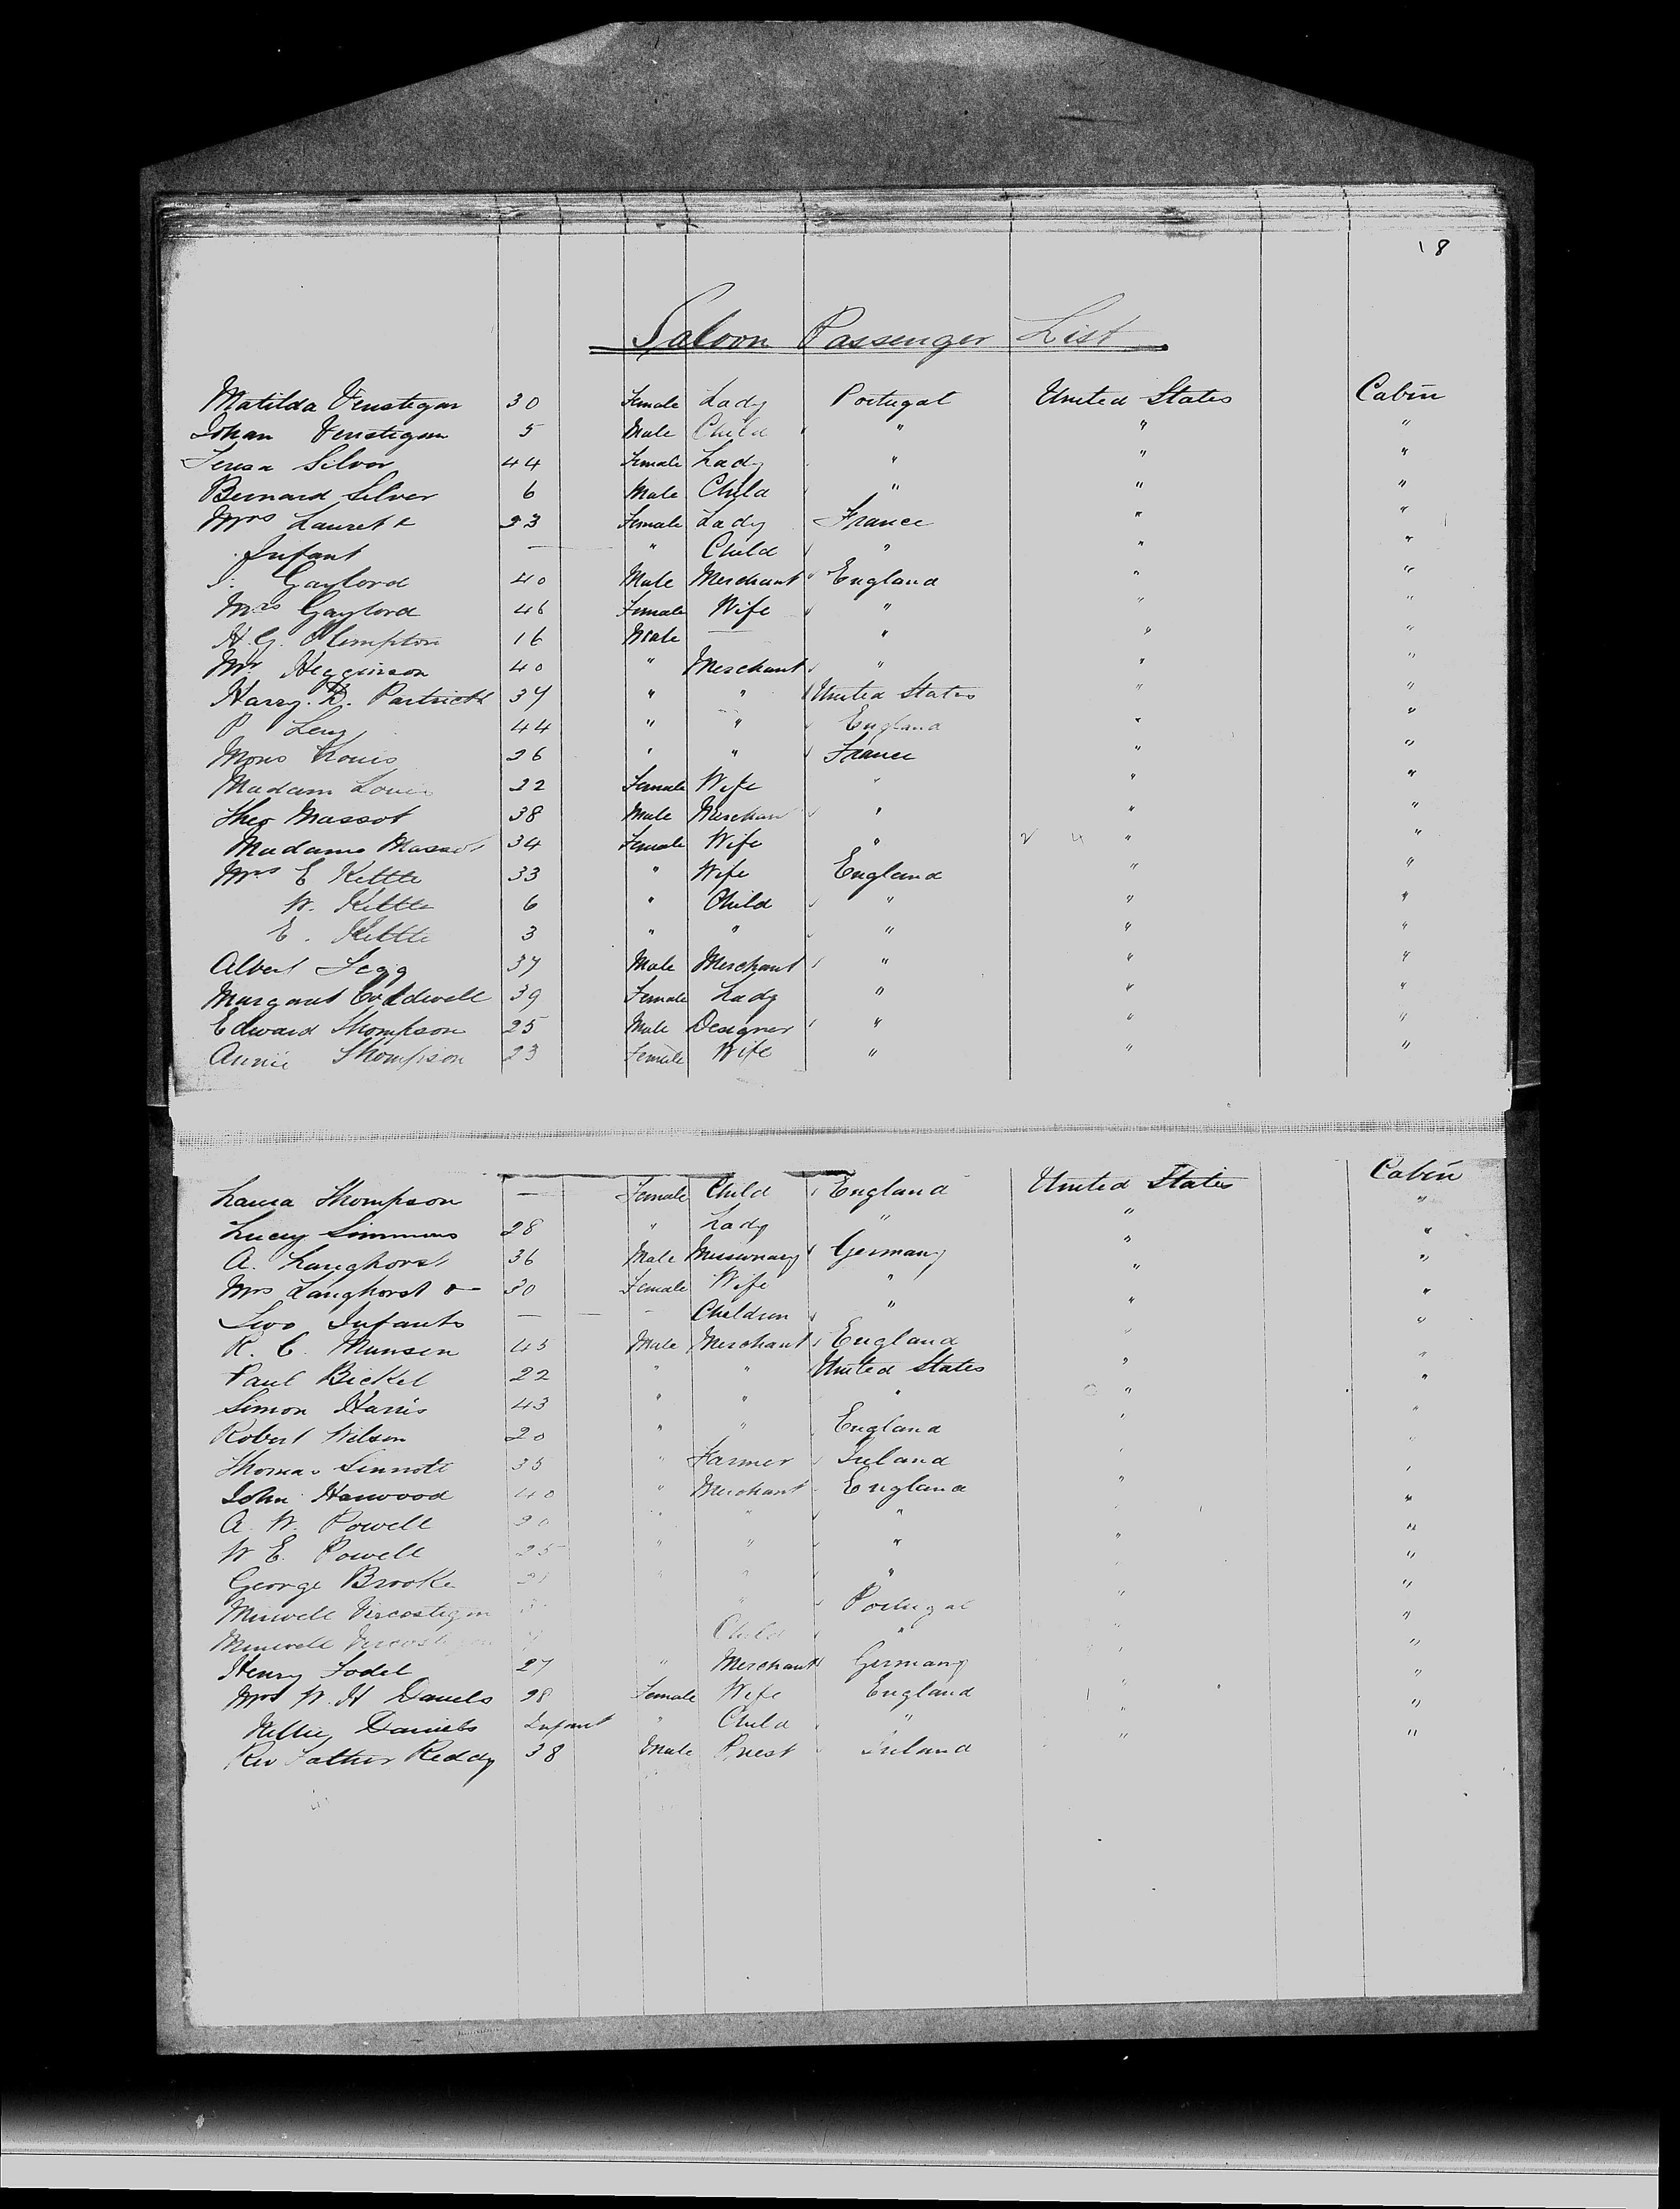 18
Saloon Passenger List
Matilda Venstegan 30 Female Lady Portugal United States Cabin
Johan Venstegan 5 Male Child " " "
Teresa Silver 44 Female Lady " " "
Bernard Silver 6 Male Child " " "
Mrs Laurette 23 Female Lady France " "
Infant — " Child " " "
Gaylord 40 Male Merchant England " "
Mrs Gaylord 46 Female Wife " " "
H. G. Plimpton 16 Male — " " "
Mr Higginson 40 " Merchant " " "
Harry. D. Partrick 37 " " United States " "
P Levy 44 " " England " "
Mons Louis 26 " " France " "
Madam Louis 22 Female Wife " " "
Theo Massot 38 Male Merchan " " "
Madame Massot 34 Female Wife " " "
Mrs E Kettle 33 " Wife England " "
W. Kettle 6 " Child " " "
E. Kettle 3 " " " " "
Albert Legg 37 Male Merchant " " "
Margaret Coldwell 39 Female Lady " " "
Edward Thompson 25 Male Designer " " "
Annie Thompson 23 Female Wife " " "
Laura Thompson — Female Child England United States Cabin
Lucy Simmons 28 " Lady " " "
A. Langhorst 36 Male Missionary Germany " "
Mrs Langhorst & 30 Female Wife " " "
Two Infants — — Children " " "
R. C. Munsen 45 Male Merchant England " "
Paul Bickel 22 " " United States " "
Simon Harris 43 " " " " "
Robert Wilson 20 " " England " "
Thomas Sinnott 35 " Farmer Ireland " "
John Harwood 40 " Merchant England " "
A. W. Powell 20 " " " " "
W E. Powell 25 " " " " "
George Brooke " " " " "
" Portugal " "
Child " " "
Henry Fodel 27 " Merchant Germany " "
Mrs W. H Daniels 28 Female Wife England " "
Nellie Daniels Infant " Child " " "
Rev Father Reddy 38 Male Priest Ireland " "